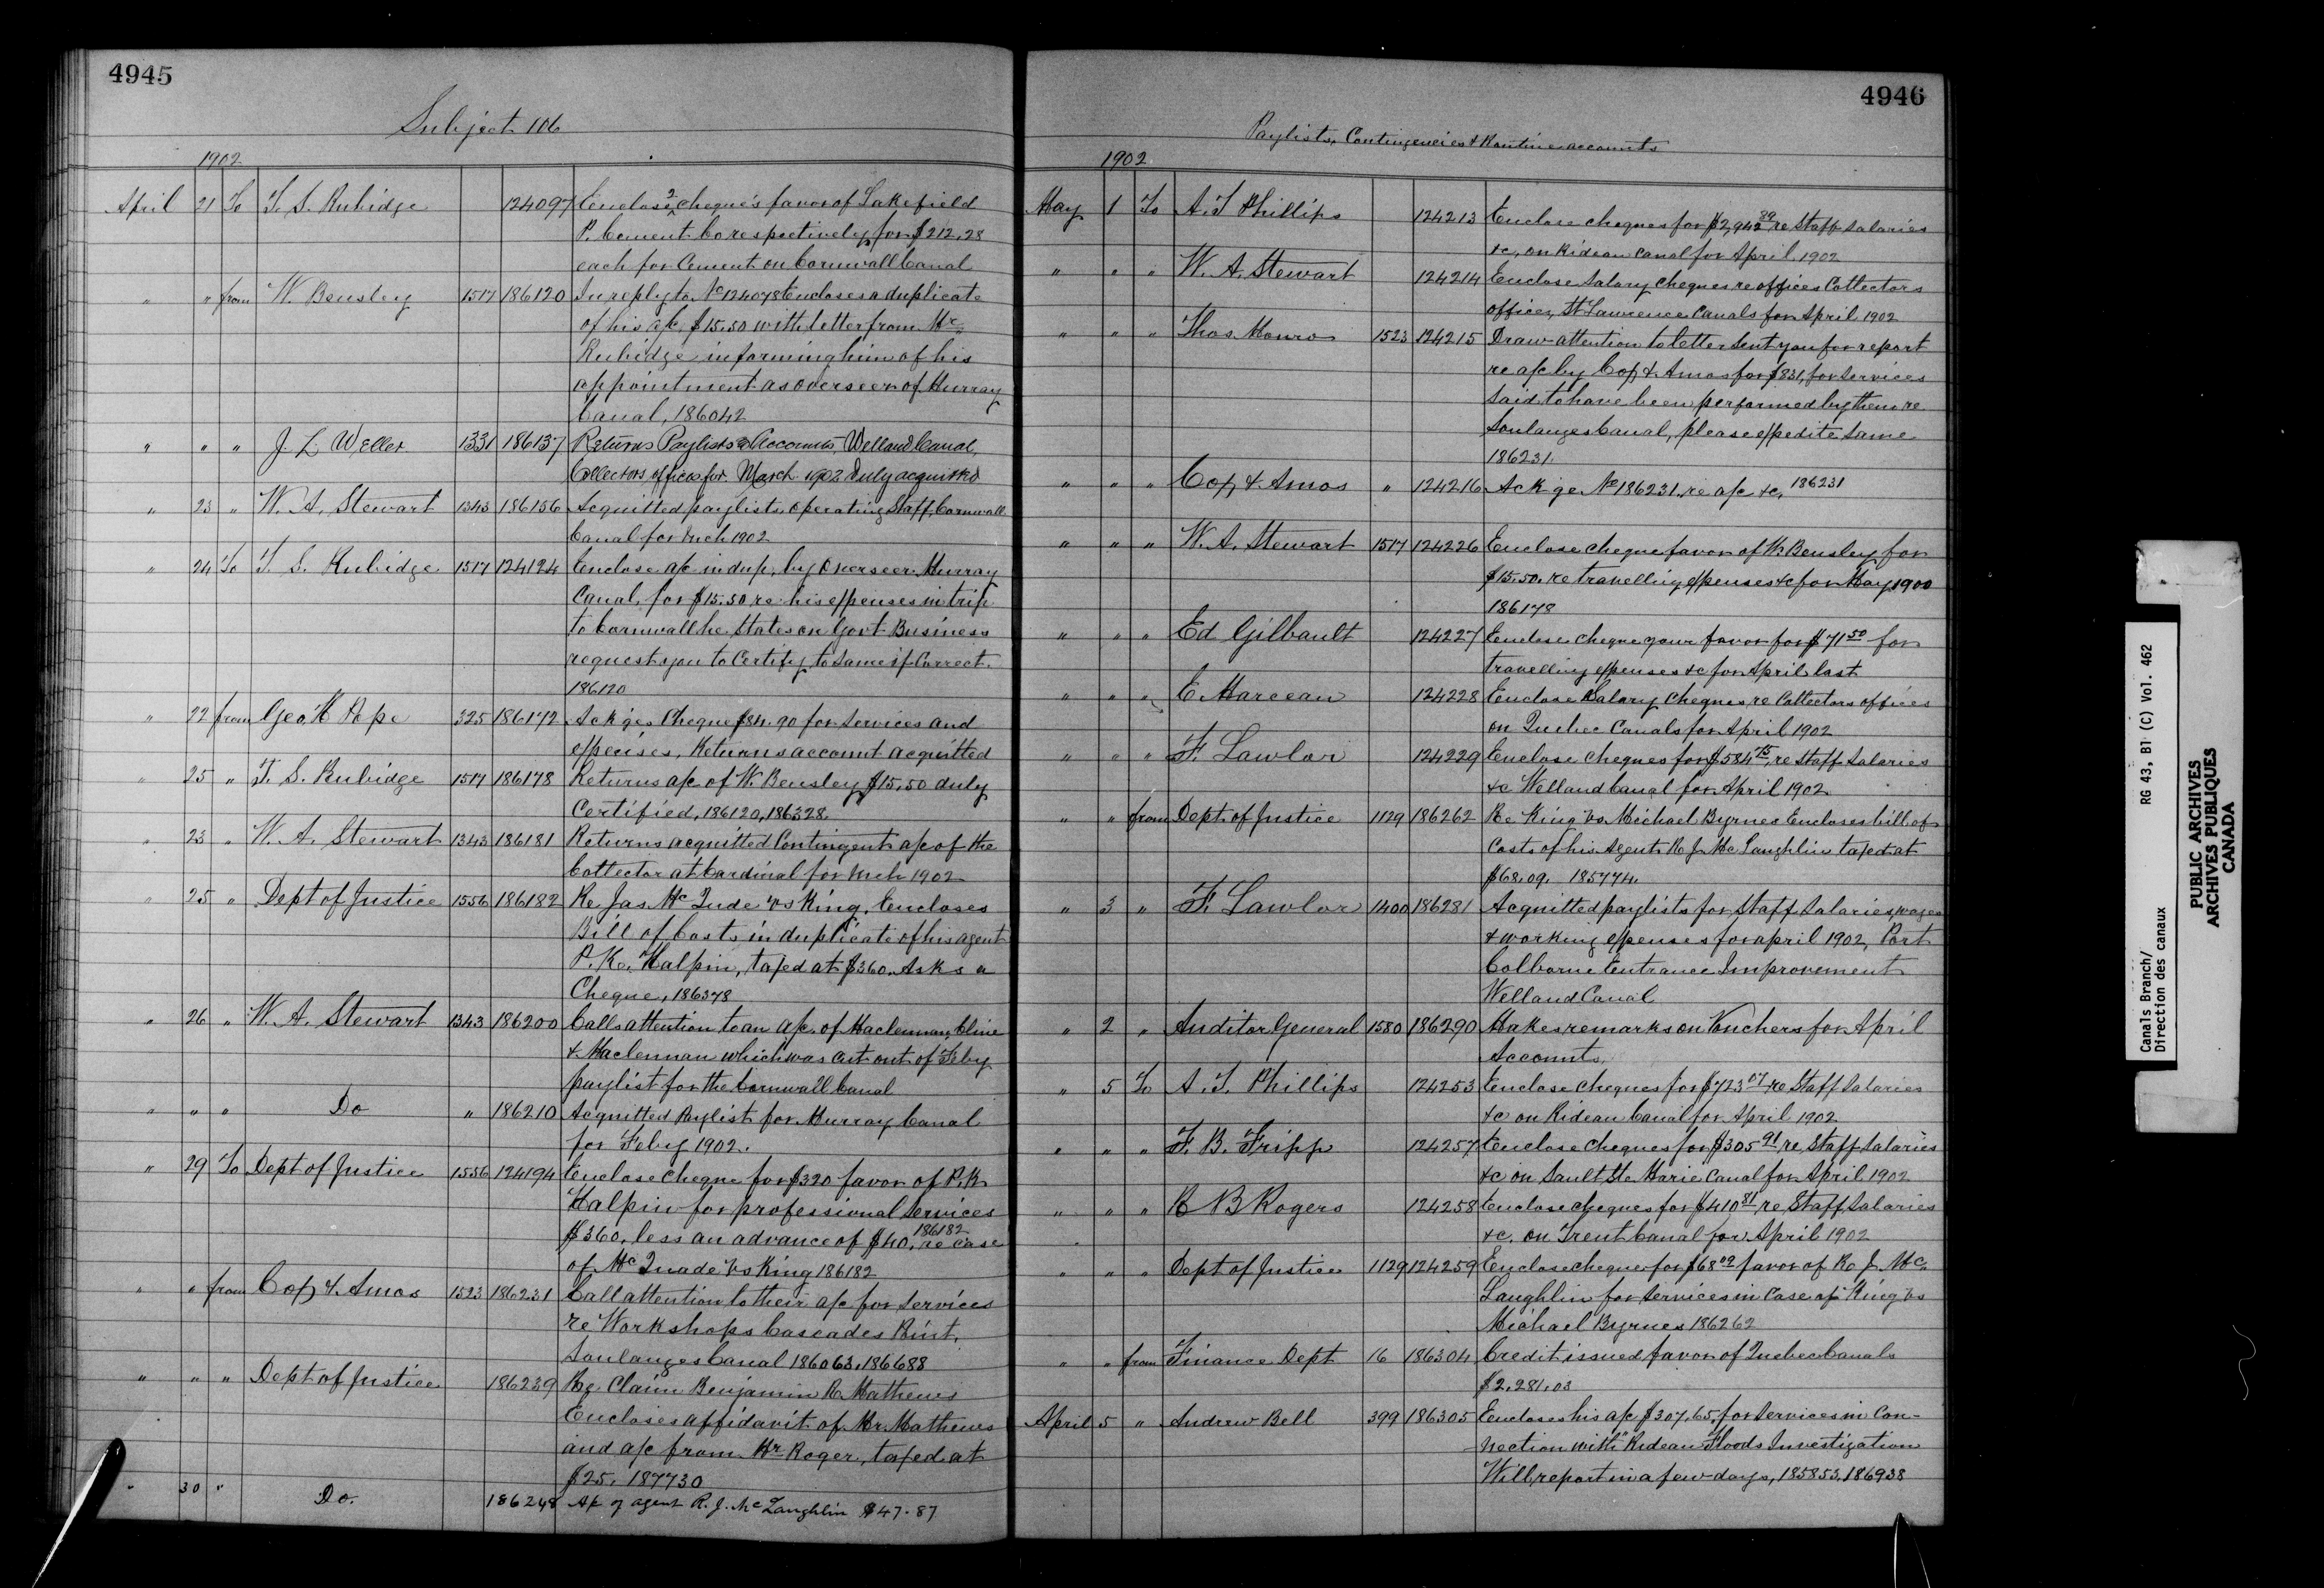 4945
Subject 106
1902
April 21 To T. S. Rubidge 124097 Enclose 2 cheques favor of Lakefield
P. Cement Co respectively for $212.28
each for Cement on Cornwall Canal
" " from W. Bensley 1517 186120 In reply to No 124078 Encloses a duplicate
of his a/c $15.50 with letter from Mr
Rubidge informing him of his
appointment as overseer of Murray
Canal, 186042
" " " J. L. Weller 1331 186137 Returns Paylists & Accounts, Welland Canal,
Collectors offices for March 1902 Duly acquitted
" 23 " W. A. Stewart 1343 186156 Acquitted paylists operating Staff, Cornwall
Canal for Mch 1902
" 24 To T. S. Rubidge 1517 124124 Enclose a/c in dup. by Overseer Murray
Canal, for $15.50 re his expenses in trip
to Cornwall he States on Govt Business
request you to Certify to Same if Correct.
186120
" 22 from Geo. H Pope 325 186172 Ackges Cheque $84.90 for Services and
expenses, Returns account acquitted
" 25 " T. S. Rubidge 1517 186178 Returns a/c of W. Bensley $15.50 duly
Certified, 186120, 186328
" 23 " W. A. Stewart 1343 186181 Returns acquitted Contingent a/c of the
Collector at Cardinal for Mch 1902
" 25 " Dept of Justice 1556 186182 Re Jas. Mc Qude vs King. Encloses
Bill of Costs in duplicate of his agent
P. K. Halpin, taxed at $360. Asks a
Cheque, 186378
" 26 " W. A. Stewart 1343 186200 Calls attention to an a/c of Maclennan, Cline
& Maclennan which was cut out of Feby
paylist for the Cornwall Canal
" " " Do " 186210 Acquitted Paylist for Murray Canal
for Feby 1902.
" 29 To Dept of Justice 1556 124194 Enclose Cheque for $320 favor of P. K.
Halpin for professional Services
$360. less an advance of $40. 186182 re case
of Mc Quade vs King 186182
" " from Cox & Amos 1523 186231 Call attention to their a/c for Services
re Workshops Cascades Point.
Soulanges Canal 186063, 186688
" " " Dept of Justice 186239 Re Claim Benjamin R. Mathews
Encloses affidavit of Mr. Mathews
and a/c from Mr Roger, taxed at
$25. 187730
" 30 " Do. 186248 A/c of agent R. J. McLaughlin $47.87
4946
Paylists, Contingencies & Routine accounts
1902
May 1 To A. T. Phillips 124213 Enclose cheques for $2,942 89 re Staff Salaries
&c, on Rideau Canal for April 1902
" " " W. A. Stewart 124214 Enclose Salary Cheques re offices Collectors
offices, St Lawrence Canals for April 1902
" " " Thos. Monro 1523 124215 Draw attention to letter Sent you for report
re a/c by Cox & Amos for $831, for Services
Said to have been performed by them re
Soulanges Canal, please expedite Same
186231.
" " " Cox & Amos " 124216 Ackge No 186231, re a/c &c, 186231
" " " W. A. Stewart 1517 124226 Enclose Cheque favor of W. Bensley for
$15.50. re travelling expenses &c for May 1900
186178
" " " Ed Gilbault 124227 Enclose Cheque your favor for $71 50 for
travelling expenses &c for April last
" " " E. Marceau 124228 Enclose Salary Cheques re Collectors offices
on Quebec Canals for April 1902
" " " F. Lawlor 124229 Enclose Cheques for $584 75, re Staff Salaries
&c Welland Canal for April 1902
" " from Dept. of Justice 1129 186262 Re King vs. Michael Byrnes Encloses bill of
Costs of his Agent R. J. Mc Laughlin taxed at
$68.09. 185774.
" 3 " F. Lawlor 1400 186281 Acquitted paylists for Staff Salaries, wages
& working expenses for april 1902, Port
Colborne Entrance Improvement
Welland Canal
" 2 " Auditor General 1580 186290 Makes remarks on Vouchers for April
Accounts.
" 5 To A. T. Phillips 124253 Enclose Cheques for $723 07 re Staff Salaries
&c on Rideau Canal for April 1902
" " " F. B. Fripp 124257 Enclose Cheques for $305 91 re Staff Salaries
&c on Sault Ste Marie Canal for April 1902
" " " R B Rogers 124258 Enclose cheques for $410 81 re Staff Salaries
&c. on Trent Canal for April 1902
" " " Dept of Justice 1129 124259 Enclose cheque for $68 09 favor of R. J. Mc
Laughlin for Services in Case of King vs
Michael Byrnes 186262
" " from Finance Dept 16 186304 Credit issued favor of Quebec Canals
$2,281.03
April 5 " Andrew Bell 399 186305 Encloses his a/c $307.65, for Services in Con-
nection with "Rideau Floods Investigation
Will report in a few days, 185853, 186938
Canals Branch/
Direction des canaux
RG 43, B1 (C) Vol. 462
PUBLIC ARCHIVES
ARCHIVES PUBLIQUES
CANADA